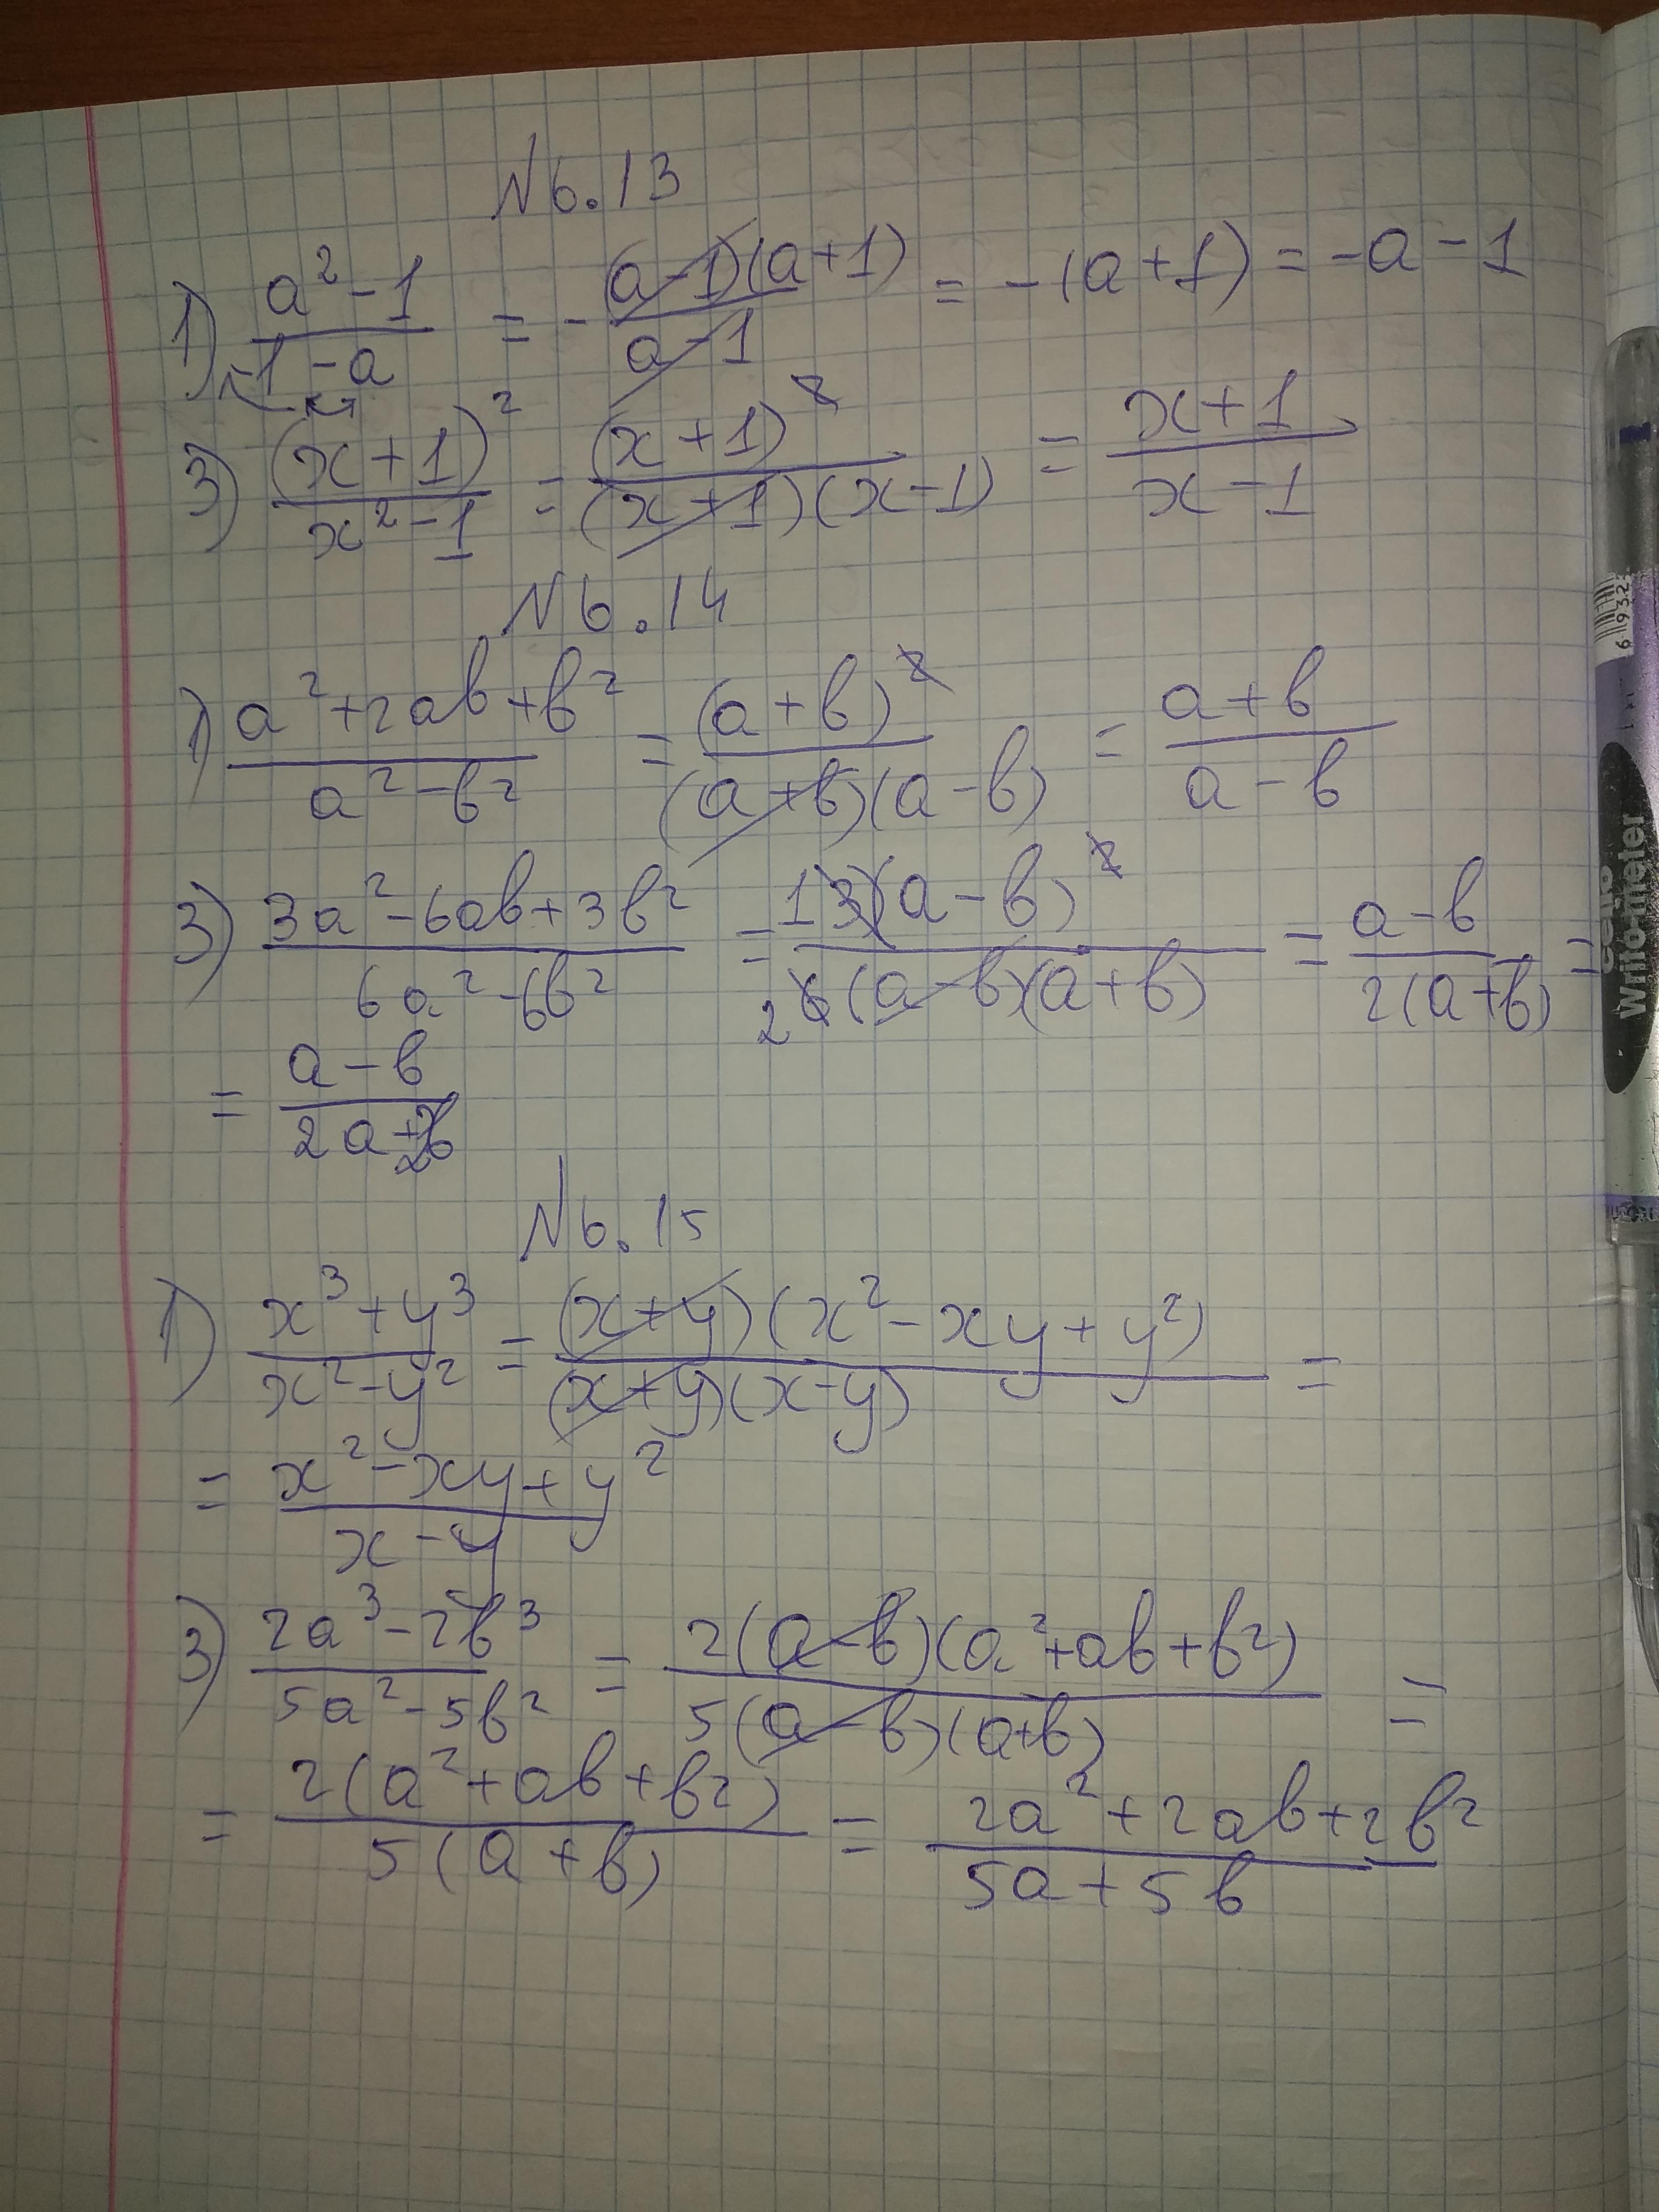 N6.13
1) (a²-1)/(1-a) = -((a-1)(a+1))/(a-1) = -(a+1) = -a-1
3) (x+1)²/(x²-1) = (x+1)²/((x+1)(x-1)) = (x+1)/(x-1)
N6.14
1) (a²+2ab+b²)/(a²-b²) = (a+b)²/((a+b)(a-b)) = (a+b)/(a-b)
3) (3a²-6ab+3b²)/(6a²-6b²) = (1 3(a-b)²)/(2 6(a-b)(a+b)) = (a-b)/(2(a+b)) =
= (a-b)/(2a+2b)
N6.15
1) (x³+y³)/(x²-y²) = ((x+y)(x²-xy+y²))/((x+y)(x-y)) =
= (x²-xy+y²)/(x-y)
3) (2a³-2b³)/(5a²-5b²) = (2(a-b)(a²+ab+b²))/(5(a-b)(a+b)) =
= (2(a²+ab+b²))/(5(a+b)) = (2a²+2ab+2b²)/(5a+5b)
Write-meter